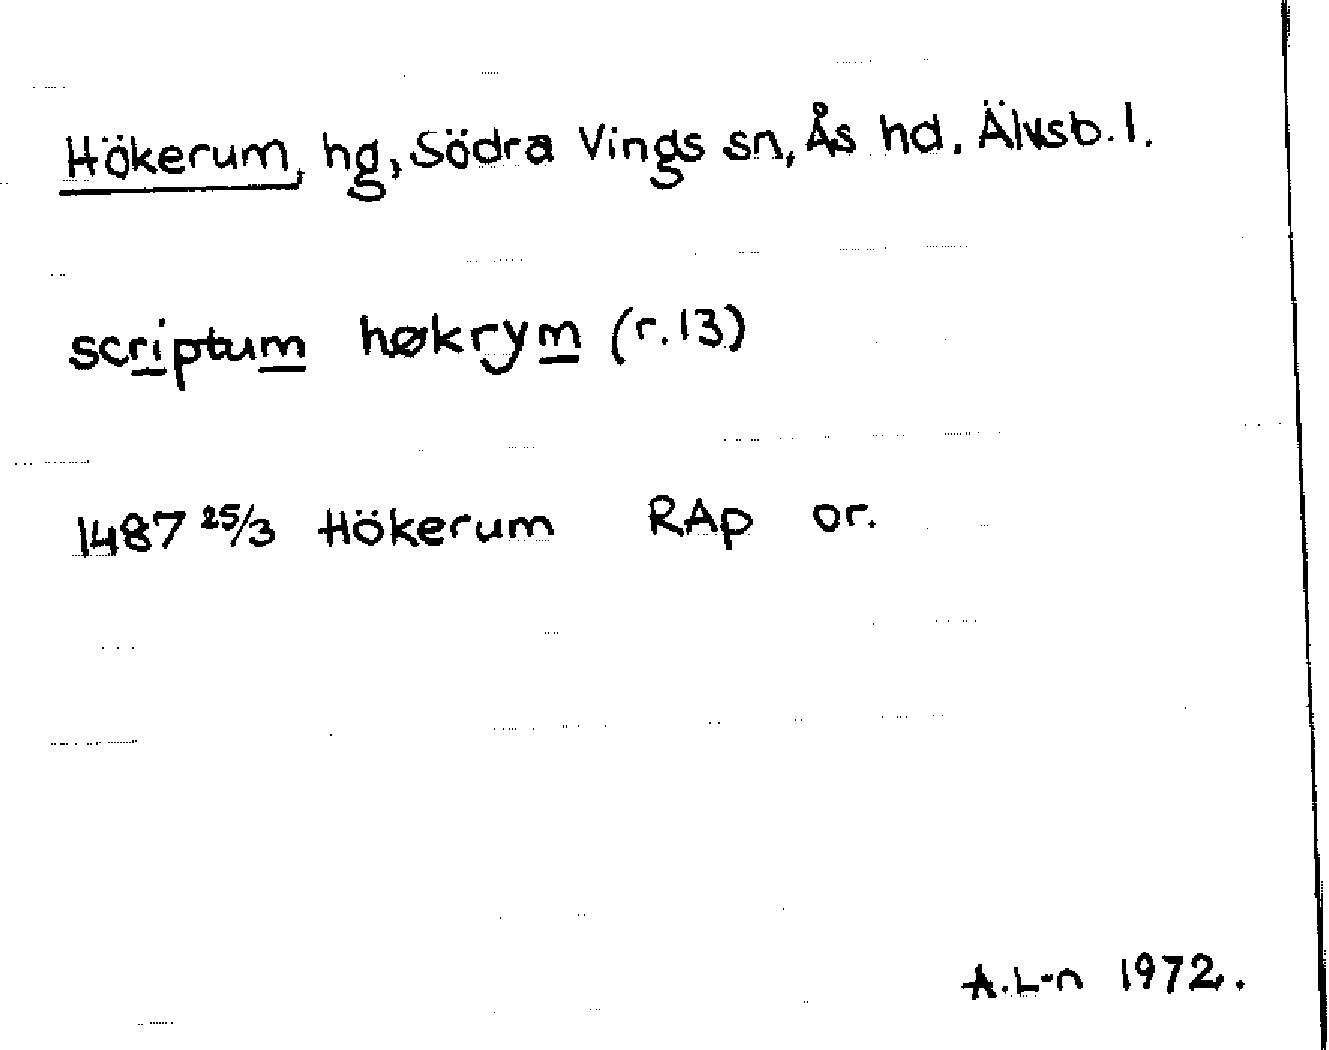 Hökerum, hg, Södra Vings sn, Ås hd. Älvsb. l.
scriptum høkrym (r. 13)
1487 25/3 Hökerum RAp or.
A. L-n 1972.